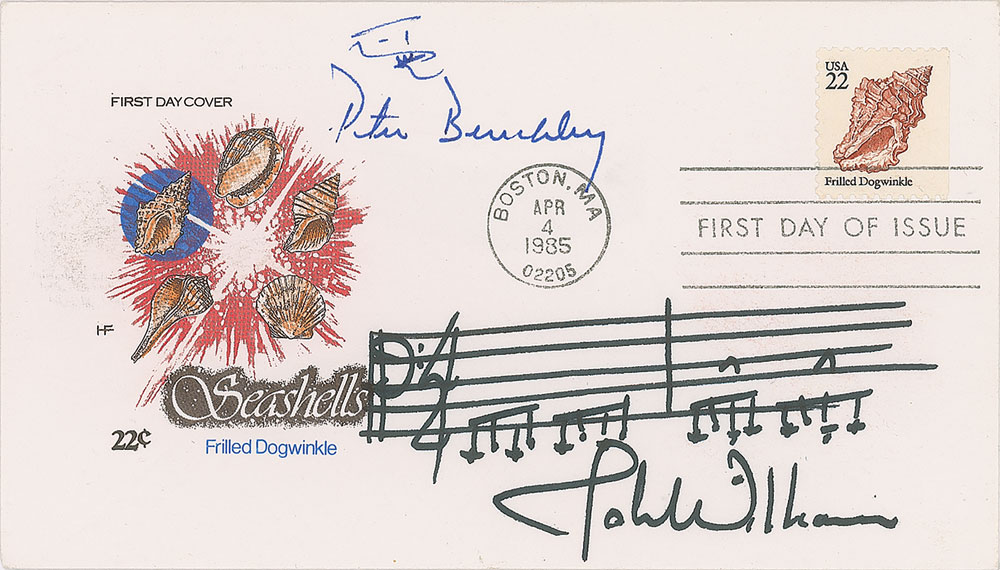 FIRST DAY COVER
Peter Benchley
USA
22
Frilled Dogwinkle
BOSTON, MA
APR
4
1985
02205
FIRST DAY OF ISSUE
HF
Seashells
22¢
Frilled Dogwinkle
John Williams